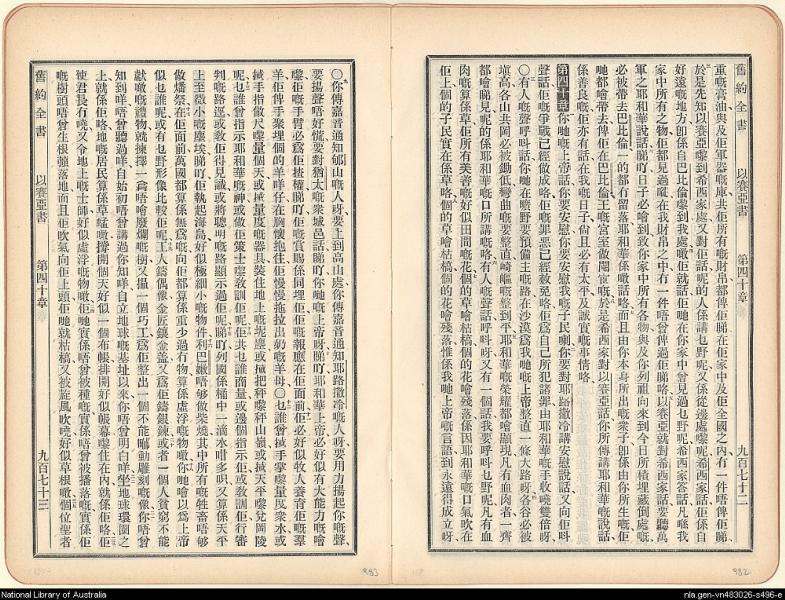 舊約全書 以賽亞書 第四十章 九百七十二
重嘅膏油與及佢軍器嘅庫共佢所有嘅財帛都俾佢睇在佢家中及佢全國之內有一件唔俾佢睇
於是先知以賽亞嚟到希西家處又對佢話呢的人係講乜野呢又係從邊處嚟呢希西家話佢係自
好遠嘅地方卽係自巴比倫嚟到我處嘅佢就話佢哋在你家中曾見過乜野呢希西家答話凡喺我
家中所有之物佢都見過囉在我財帛之中有一件唔曾俾過佢睇咯以賽亞就對希西家話要聽萬
軍之耶和華說話睇吖日子必嚟到致你家中所有各物與及你列祖向來到今日所積埋藏倒處嘅
必被帶去巴比倫一的都冇留落耶和華係噉話咯而且由你本身所出嘅衆子卽係由你所生嘅佢
哋都噲帶去俾佢在巴比倫王嘅宮室做閹宦嘅於是希西家對以賽亞話你所傳講耶和華嘅說話
係善良嘅佢亦有話在我嘅日子尚且必有太平及誠實嘅事情咯
第四十章 你哋嘅上帝話你要安慰你要安慰我嘅子民喇你要對耶路撒冷講安慰說話又向佢叫
聲話佢嘅爭戰已經做成咯佢嘅罪惡已經赦免咯佢爲自己所犯諸罪由耶和華嘅手收曉雙倍呀
○有人嘅聲呼叫話你哋在曠野要預備王嘅路在沙漠爲我哋嘅上帝整直一條大路呀各谷必被
塡高各山共岡必被鋤低彎曲嘅要整直崎嶇嘅整到平耶和華嘅榮耀都噲顯現凡有血肉者一齊
都噲睇見呢的係耶和華嘅口所講嘅咯有人嘅聲話呼叫呀又有一個話我要呼叫乜野呢凡有血
肉嘅算係草佢所有美善嘅好似田間嘅花個的草噲枯槁個的花噲殘落係因耶和華口氣吹在
佢上個的子民實在係草咯個的草噲枯槁個的花噲殘落惟係我哋上帝嘅言語到永遠得成立呀
○你傳嘉音通知郇山嘅人呀要上到高山處你傳嘉音通知耶路撒冷嘅人呀要用力揚起你嘅聲
要揚聲唔好慌要對猶太嘅衆城邑話睇吖你哋嘅上帝呀睇吖耶和華上帝必好似有大能力嘅噲
嚟佢嘅手臂必爲佢揸權睇吖佢嘅賞賜係同埋佢佢嘅報應在佢面前佢必好似牧人養育佢嘅羣
羊佢俾手聚埋個的羊咩仔在胸懷抱住佢慢慢拖拉出奶嘅羊母○乜誰曾㨢手掌嚟量度衆水或
㨢手指俾尺嚟量個天或㨢量度嘅器具裝住地上嘅坭塵或㨢把秤嚟秤山嶺或㨢天平嚟兌岡陵
呢乜誰曾指示耶和華嘅神或做佢策士嚟敎訓佢呢佢共乜誰商量或邊個指示佢或敎訓佢行審
判嘅路逕或敎佢得見識或將聰明嘅路顯示過佢呢睇吖列國係桶中一滴水咁多呮又算係天平
上至微小嘅塵埃睇吖佢執起海島好似極細小嘅物件利巴嫩唔够做柴燒其中所有嘅牲畜唔够
做燔祭在佢面前萬國都算係無爲嘅向佢都算係重少過冇物算係虛浮嘅物噉你哋噲以爲上帝
似乜誰呢或冇乜野形像比較佢呢工人鑄偶像金匠鑲金葢又爲佢鑄銀鍊或者一個人貧窮不能
獻噉嘅禮物就揀擇一䓤唔噲廢爛嘅樹又揾一個巧工爲佢整出一個不能喐動雕刻嘅像你唔曾
知到咩唔曾聽過咩自始初唔曾講過你知咩自立地球嘅基址以來你唔曾明白咩坐在地球環圈之
上就係佢咯地嘅居民算係草蜢噉撐開個天好似一個布帳排開好似帳幕嚟住在內就係佢咯佢
使君長冇曉又令地上嘅士師好似虛浮嘅物噉佢哋實係唔曾被種嘅實係唔曾被播落嘅實係佢
嘅樹頭唔曾生根蘸落地面且佢吹氣向佢上頭佢哋就枯槁又被旋風吹曉好似草根噉個位聖者
舊約全書 以賽亞書 第四十章 九百七十三
983
982
National Library of Australia
nla.gen-vn483026-s496-e